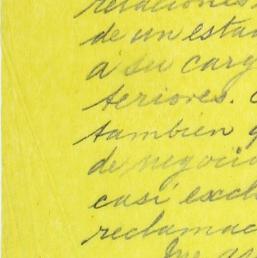 relaciones
de un esta
a su carg
teriores.
tambien q
de negocio
casi excl
reclamac
Me